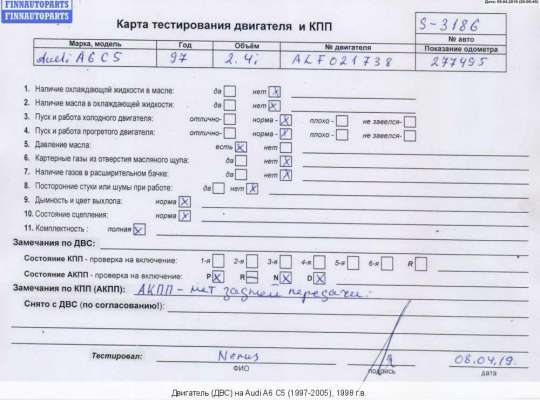 FINNAUTOPARTS
FINNAUTOPARTS
Карта тестирования двигателя и КПП
S-3186
№ авто
Марка, модель Год Объём № двигателя Показание одометра
Audi A6 C5 97 2.4i ALF021738 277495
1. Наличие охлаждающей жидкости в масле: да нет X
2. Наличие масла в охлаждающей жидкости: да нет X
3. Пуск и работа холодного двигателя: отлично- норма - X плохо - не завелся-
4. Пуск и работа прогретого двигателя: отлично- норма - X плохо - не завелся-
5. Давление масла: есть X нет
6. Картерные газы из отверстия масляного щупа: да нет X
7. Наличие газов в расширительном бачке: да нет X
8. Посторонние стуки или шумы при работе: да нет X
9. Дымность и цвет выхлопа: норма X
10. Состояние сцепления: норма X
11. Комплектность : полная X
Замечания по ДВС:
Состояние КПП - проверка на включение: 1-я 2-я 3-я 4-я 5-я 6-я R
Состояние АКПП - проверка на включение: P X R – N X D X
Замечания по КПП (АКПП): АКПП - нет задней передачи.
Снято с ДВС (по согласованию!):
Тестировал: 08.04.19.
ФИО подпись дата
Двигатель (ДВС) на Audi A6 C5 (1997-2005), 1998 г.в.